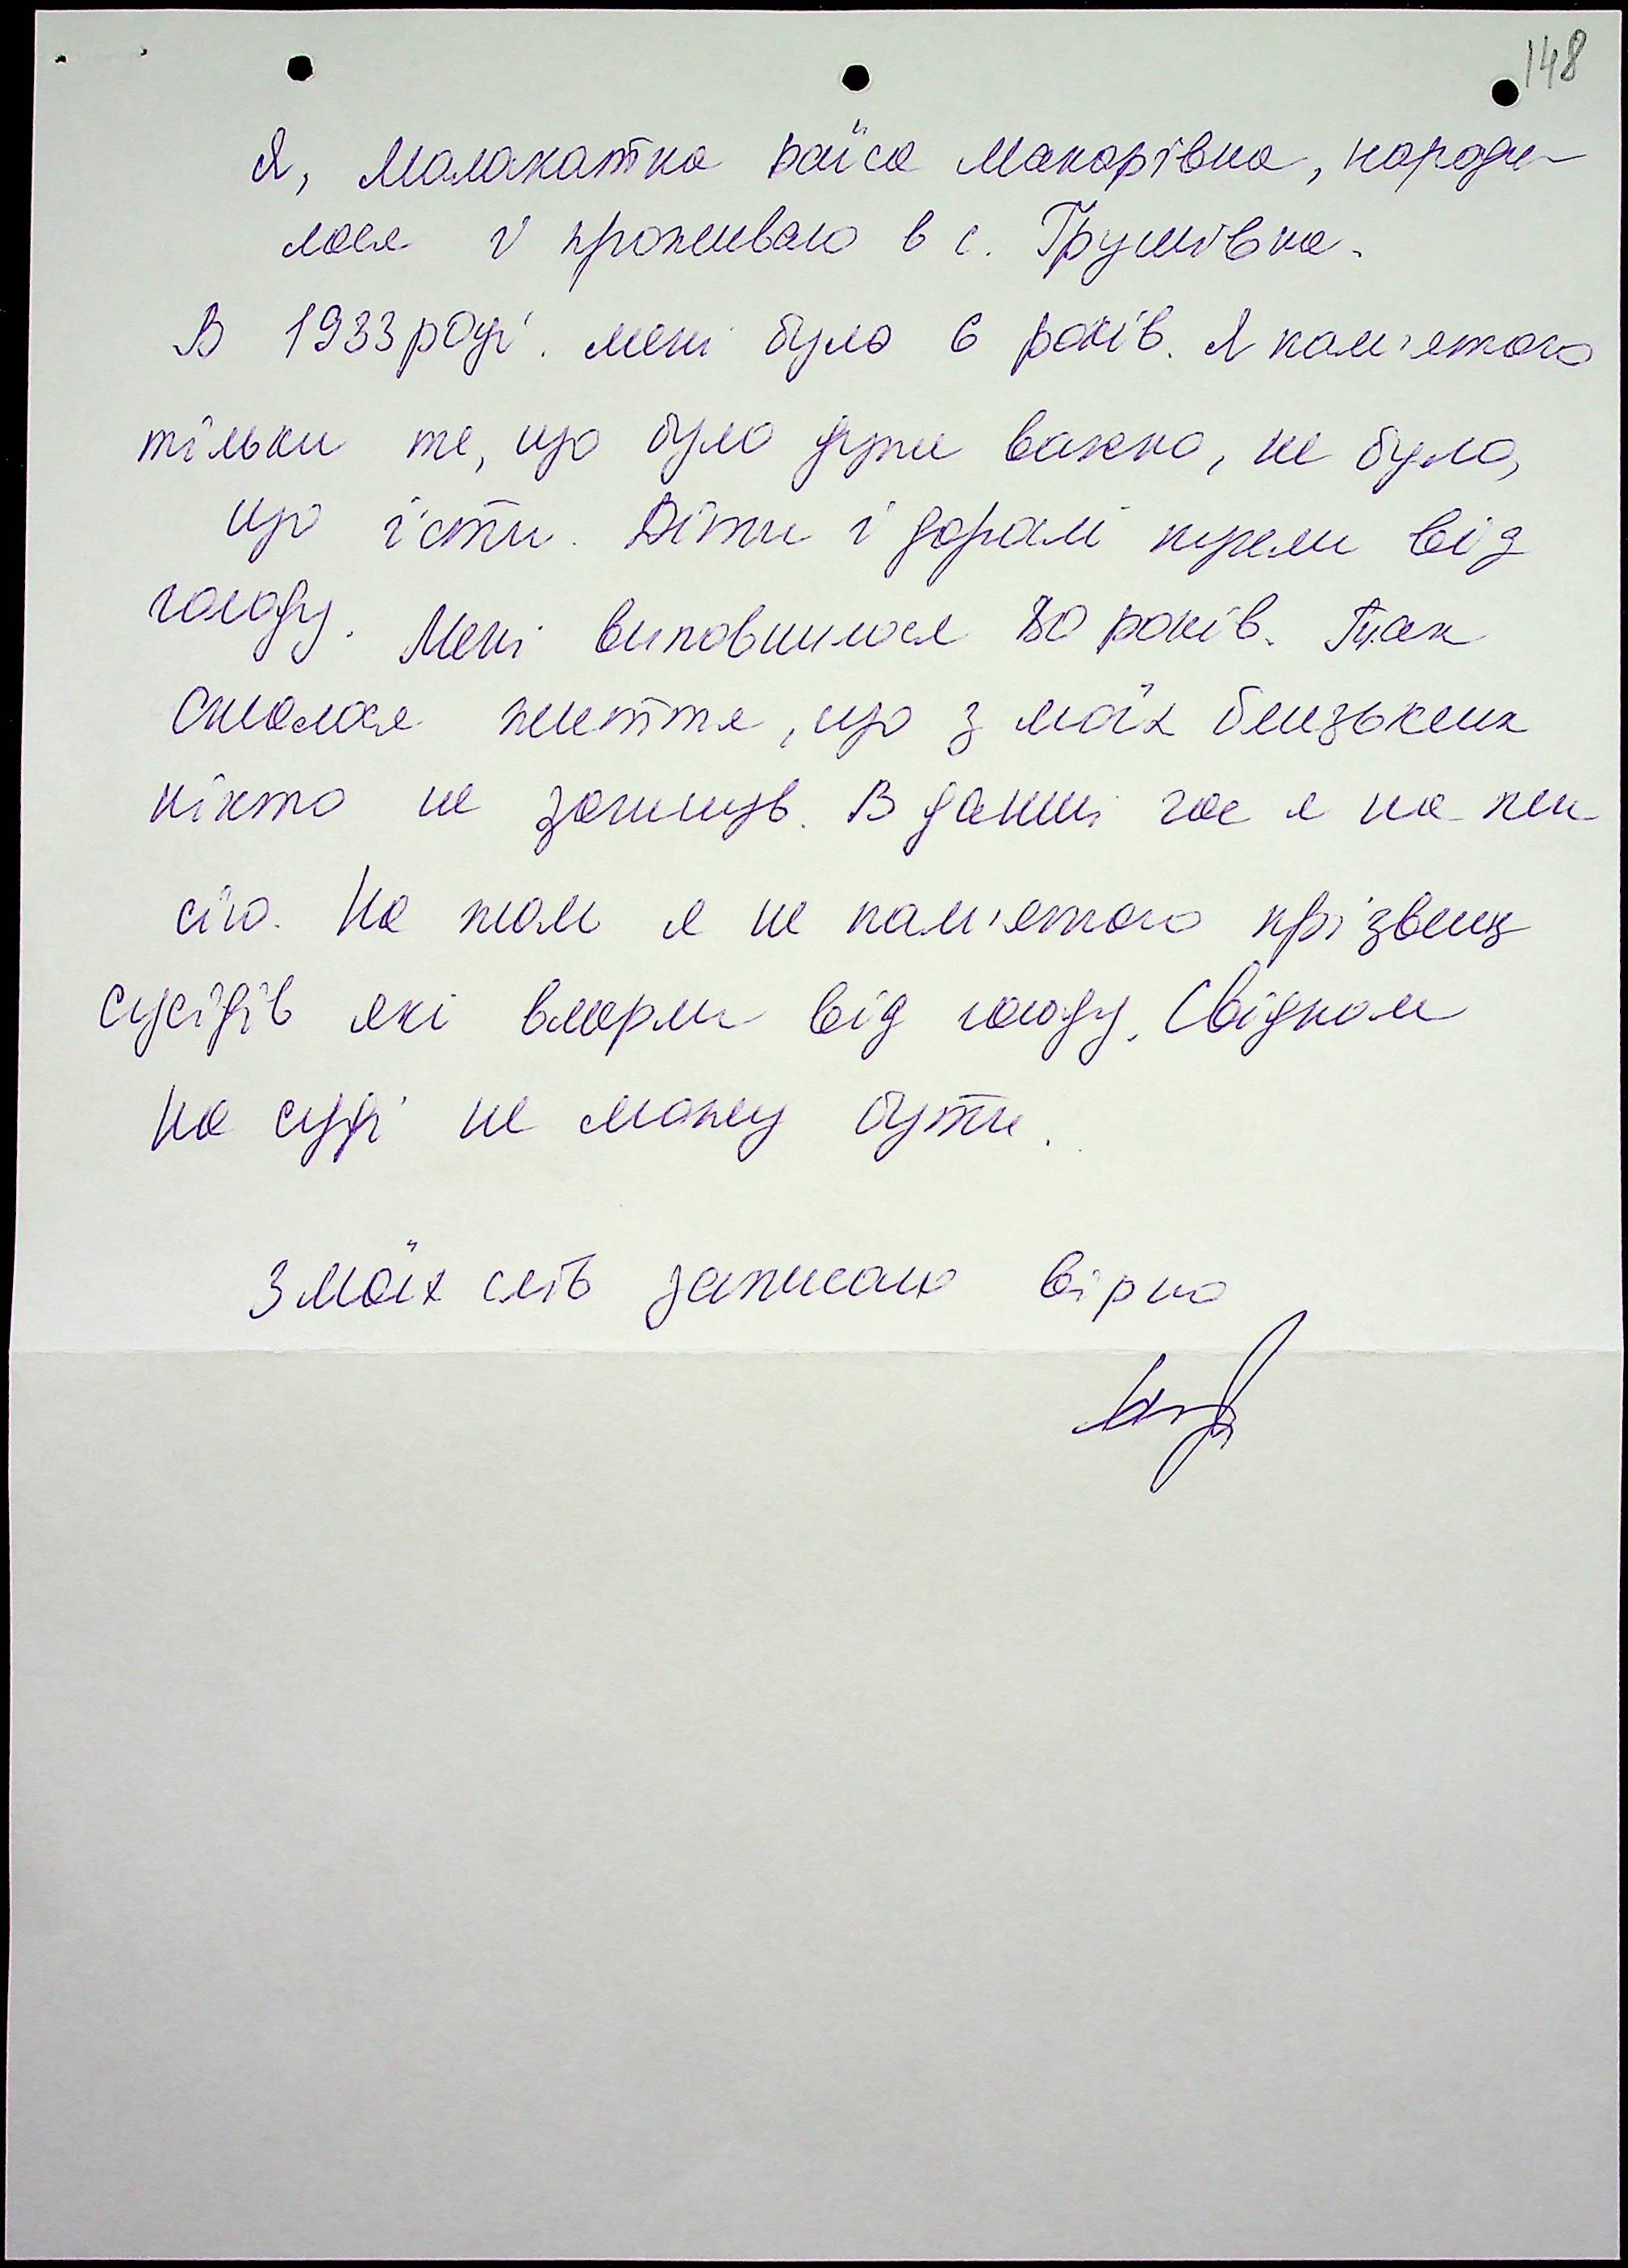 148
Я, Малакатка Раїса Макарівна, народи-
лася і проживаю в с. Грушівка.
В 1933 році. мені було 6 років. Я пам'ятаю
тільки те, що було дуже важко, не було,
що їсти. Діти і дорослі мерли від
голоду. Мені виповнилося 80 років. Так
склалося життя, що з моїх близьких
ніхто не загинув. В данні час я на пен
сію. На жаль я не пам'ятаю прізвищ
сусідів які вмерли від голоду. Свідком
на суді не можу бути.
З моїх слів записано вірно